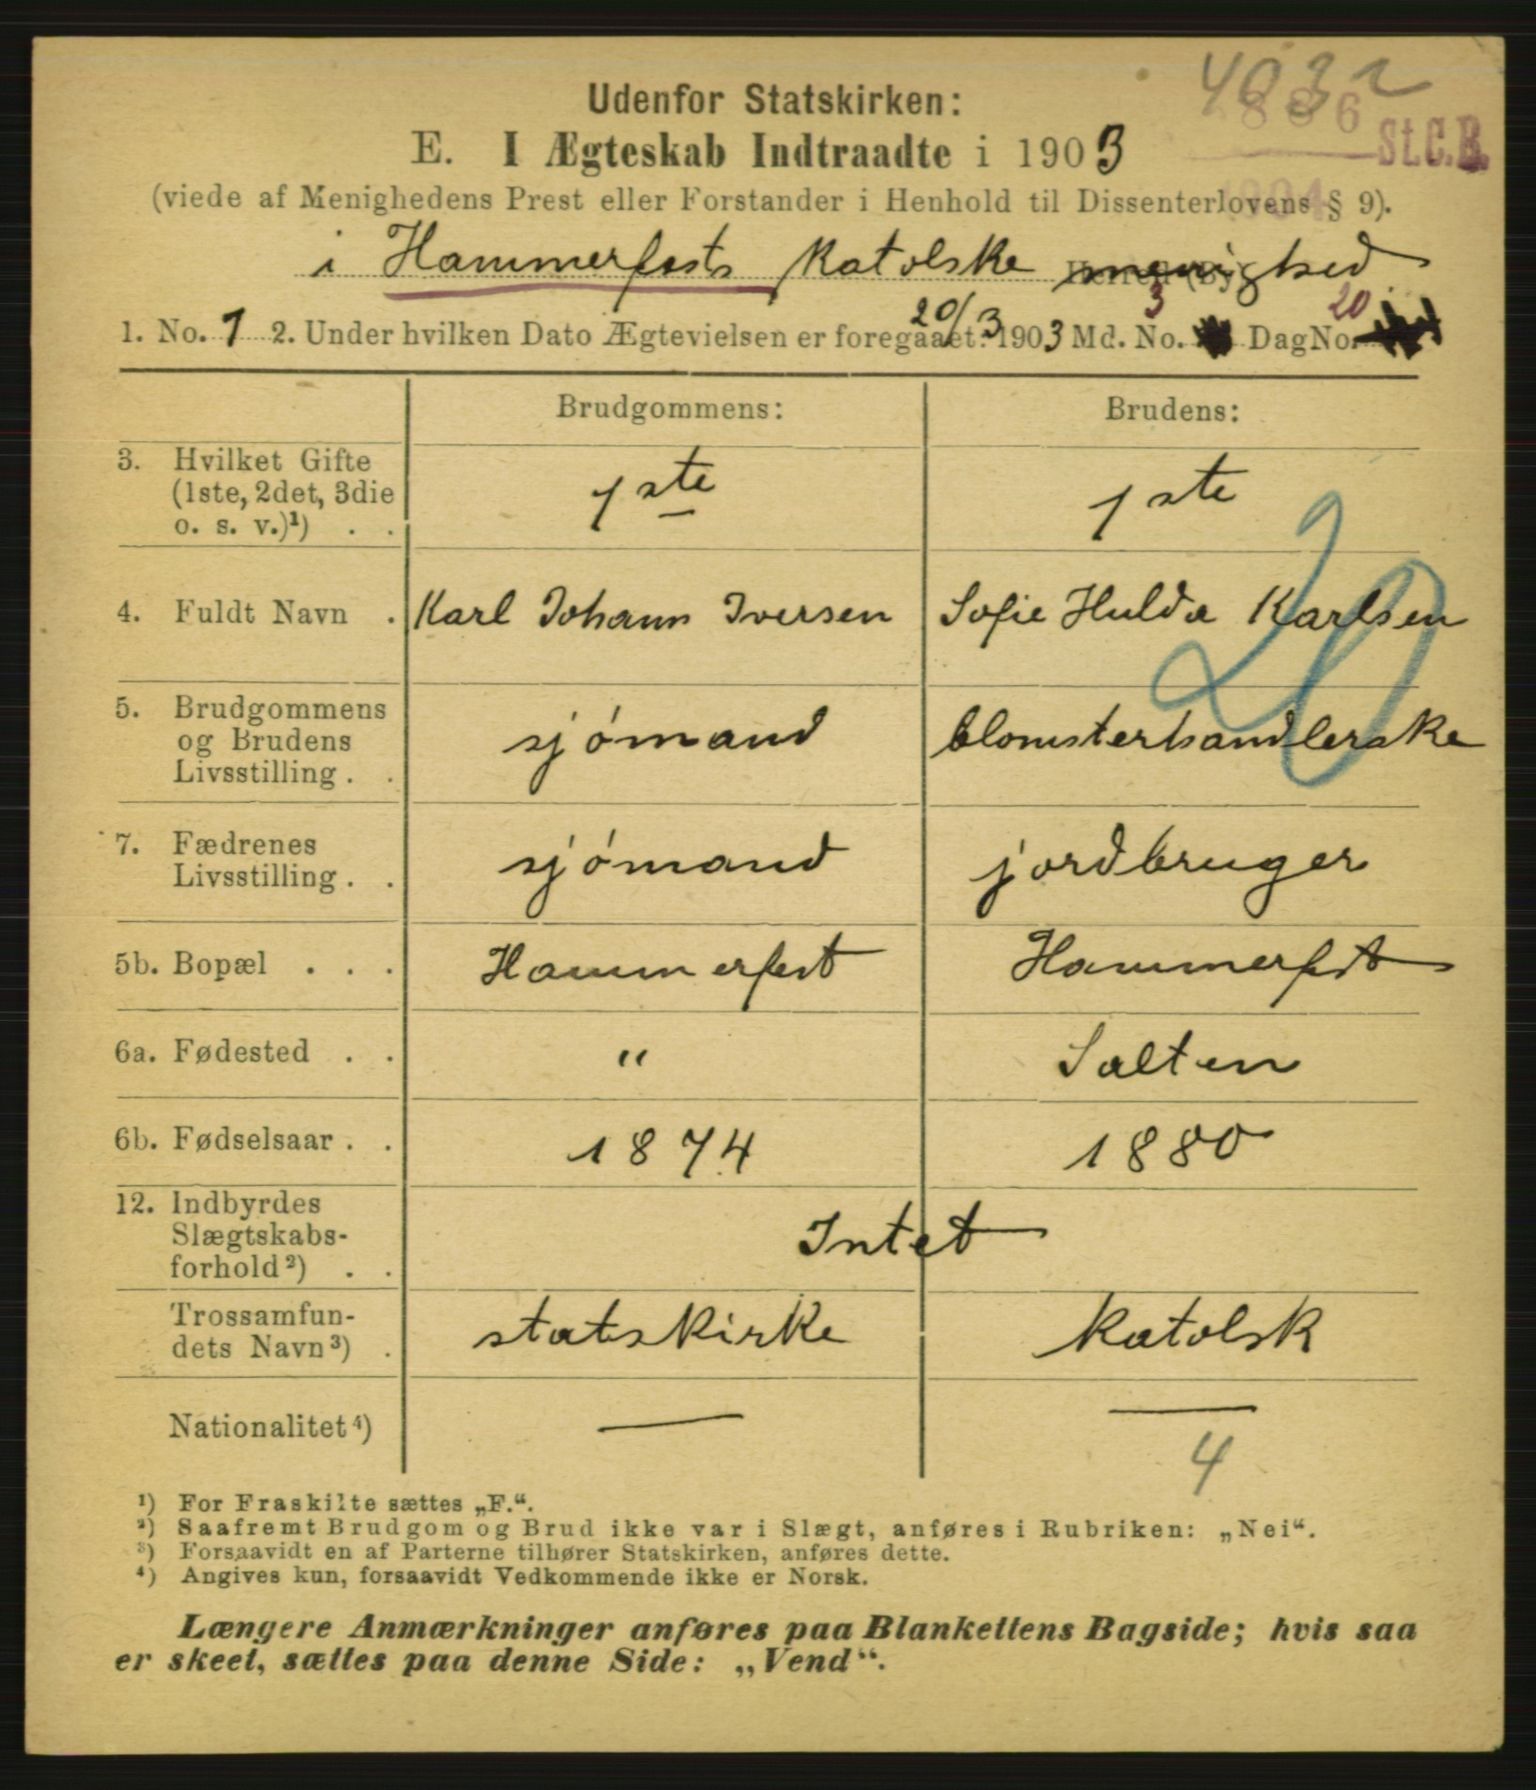 4032
886
St.C.B.
1904
Udenfor Statskirken:
E. I Ægteskab Indtraadte i 1903
(viede af Menighedens Prest eller Forstander i Henhold til Dissenterlovens § 9).
i Hammerfests katolske menighed
3 20
1. No. 1 2. Under hvilken Dato Ægtevielsen er foregaaet: 20/3 1903 Md. No. DagNo.
Brudgommens: Brudens:
3. Hvilket Gifte
(1ste, 2det, 3die
o. s. v.)¹) . . 1ste 1ste
20
4. Fuldt Navn . Karl Johann Iversen Sofie Hulda Karlsen
5. Brudgommens
og Brudens
Livsstilling . . sjómand blomsterhandlerske
7. Fædrenes
Livsstilling . . sjómand jordbruger
5b. Bopæl . . . Hammerfest Hammerfest
6a. Fødested . . " Salten
6b. Fødselsaar . . 1874 1880
12. Indbyrdes
Slægtskabs-
forhold²) . . Intet
Trossamfun-
dets Navn³) . statskirke katolsk
Nationalitet⁴) — —
4
¹) For Fraskilte sættes „F.“.
²) Saafremt Brudgom og Brud ikke var i Slægt, anføres i Rubriken: „Nei“.
³) Forsaavidt en af Parterne tilhører Statskirken, anføres dette.
⁴) Angives kun, forsaavidt Vedkommende ikke er Norsk.
Længere Anmærkninger anføres paa Blankettens Bagside; hvis saa
er skeet, sættes paa denne Side: „Vend“.